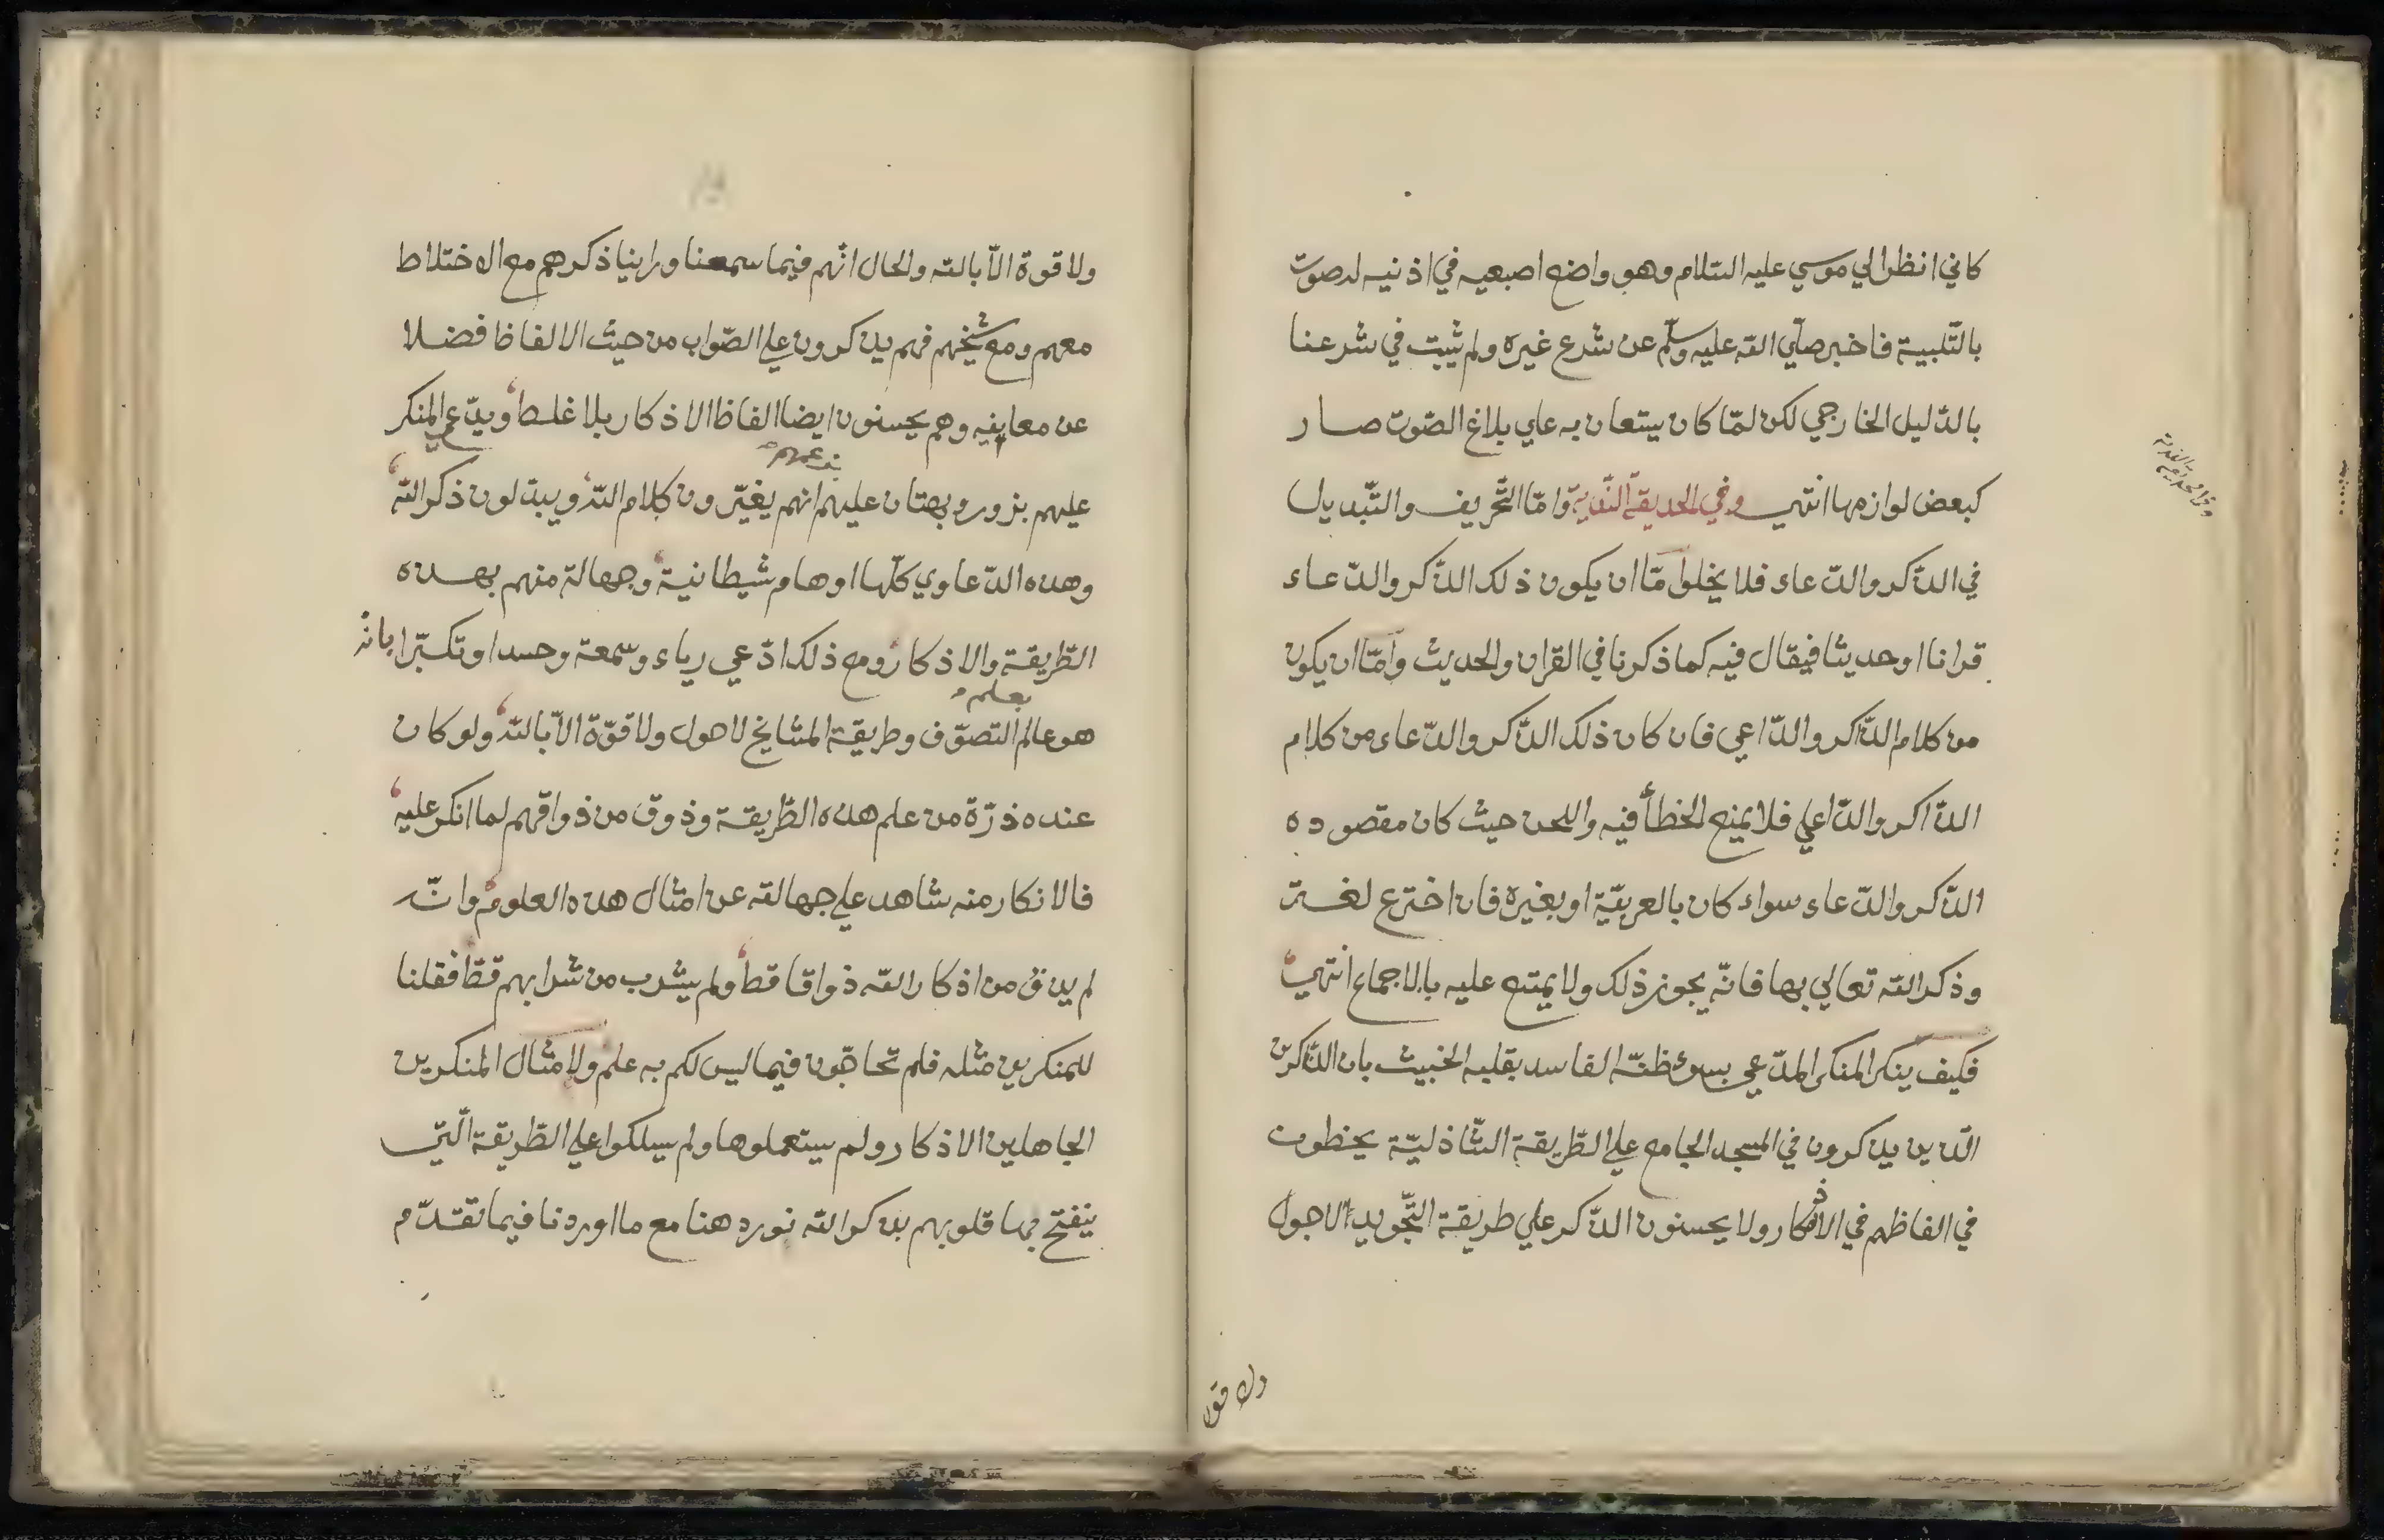 كاني انظر الي موسي عليه السّلام وهو واضع اصبعيه في اذنيه له صوت
بالتّلبية فاخبر صلّي الله عليه وسلّم عن شرع غيره ولم يثبت في شرعنا
بالدّليل الخارجي لكن لمّا كان يستعان به علي بلاغ الصّوت صار
كبعض لوازمها انتهي وفي الحديقة النّديّة وامّا التّحريف والتّبديل
في الذّكر والدّعاء فلا يخلوا مّا ان يكون ذلك الذّكر والدّعاء
قرانا او حديثا فيقال فيه كما ذكرنا في القران والحديث وامّا ان يكون
من كلام الذّاكر والدّاعي فان كان ذلك الذّكر والدّعاء من كلام
الذّاكر والدّاعي فلا يمنع الخطأ فيه واللحن حيث كان مقصوده
الذّكر والدّعاء سواء كان بالعربيّة او بغيره فان اخترع لغة
وذكر الله تعالي بها فانّه يجوز ذلك ولا يمتنع عليه بالاجماع انتهي
فكيف ينكر المنكر المدّعي بسوء ظنّه الفاسد بقلبه الخبيث بان الذّاكرين
الّذين يذكرون في المسجد الجامع علي الطّريقة الشّاذليّة يخطون
في الفاظهم في الاذكار ولا يحسنون الذّكر علي طريقة التّجويد لاحول
ولا قوة
وفي الحديقة النديه
ولا قوة الاّ بالله والحال انّهم فيما سمعنا وراينا ذكرهم مع الاختلاط
معهم ومع شيخهم فهم يذكرون علي الصّواب من حيث الالفاظ فضلا
عن معانيه وهم يحسنون ايضا الفاظ الاذكار بلا غلط ويدّعي المنكر
بزعمهم
عليهم بزور وبهتان عليهم انهم يغيّرون كلام الله ويبدّلون ذكر الله
وهذه الدّعاوي كلّها اوهام شيطانية وجهالة منهم بهذه
الطّريقة والاذكار ومع ذلك ادّعي رياء وسمعة وحسدا وتكبّرا بانّه
بعلم
هو عالم التصوّف وطريقة المشايخ لاحول ولا قوّة الاّ بالله ولو كان
عنده ذرّة من علم هذه الطّريقة وذوق من ذواقهم لما انكر عليه
فالانكار منه شاهد علي جهالته عن امثال هذه العلوم وانّه
لم يذق من اذكار الله ذواقا قط ولم يشرب من شرابهم قطّ فقلنا
للمنكرين مثله فلم تحاجّون فيما ليس لكم به علم ولامثال المنكرين
الجاهلين الاذكار ولم يستعملوها ولم يسلكوا علي الطّريقة الّتي
ينفتح بها قلوبهم بذكر الله نورد هنا مع ما اوردنا فيما تقدّم